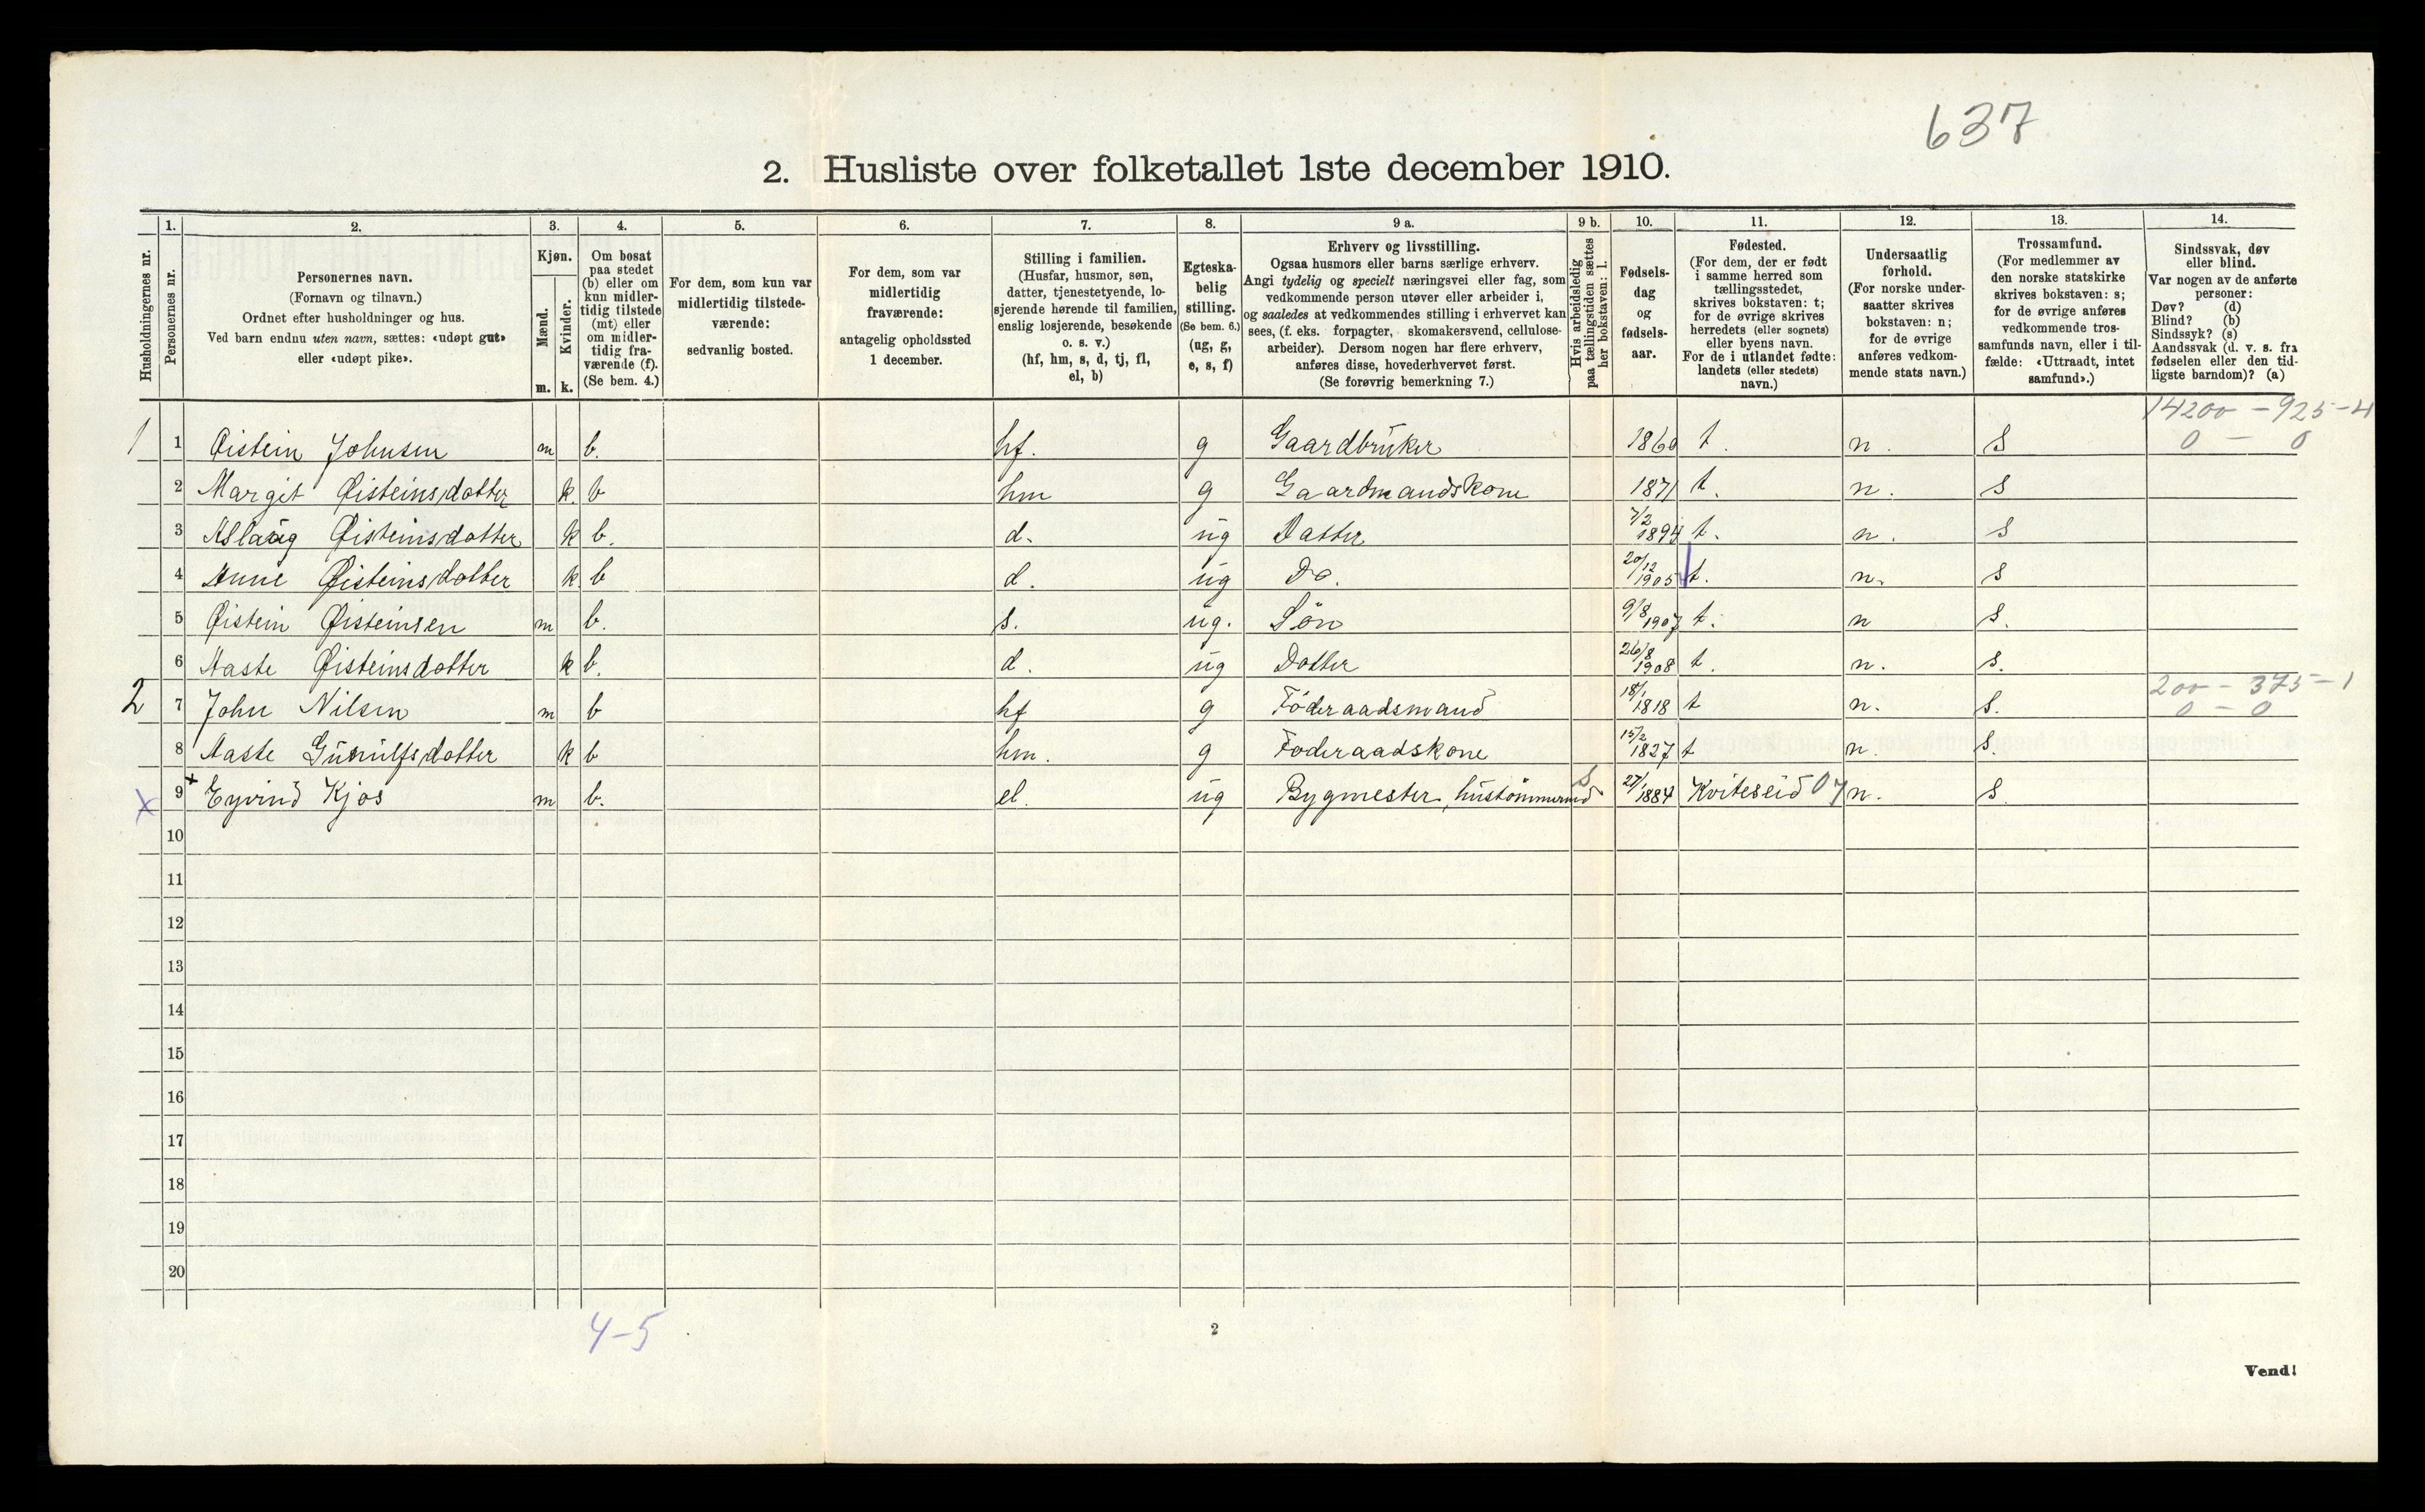 637
2. Husliste over folketallet 1ste december 1910.
Husholdningernes nr.
1.
Personernes nr.
2.
Personernes navn.
(Fornavn og tilnavn.)
Ordnet efter husholdninger og hus.
Ved barn endnu uten navn, sættes: «udøpt gut»
eller «udøpt pike».
3.
Kjøn.
Mænd.
m.
Kvinder.
k.
4.
Om bosat
paa stedet
(b) eller om
kun midler-
tidig tilstede
(mt) eller
om midler-
tidig fra-
værende (f).
(Se bem. 4.)
5.
For dem, som kun var
midlertidig tilstede-
værende:
sedvanlig bosted.
6.
For dem, som var
midlertidig
fraværende:
antagelig opholdssted
1 december.
7.
Stilling i familien.
(Husfar, husmor, søn,
datter, tjenestetyende, lo-
sjerende hørende til familien,
enslig losjerende, besøkende
o. s. v.)
(hf, hm, s, d, tj, fl,
el, b)
8.
Egteska-
belig
stilling.
(Se bem. 6.)
(ug, g,
e, s, f)
9 a.
Erhverv og livsstilling.
Ogsaa husmors eller barns særlige erhverv.
Angi tydelig og specielt næringsvei eller fag, som
vedkommende person utøver eller arbeider i,
og saaledes at vedkommendes stilling i erhvervet kan
sees, (f. eks. forpagter, skomakersvend, cellulose-
arbeider). Dersom nogen har flere erhverv,
anføres disse, hovederhvervet først.
(Se forøvrig bemerkning 7.)
9 b.
Hvis arbeidsledig
paa tællingstiden sættes
her bokstaven: l.
10.
Fødsels-
dag
og
fødsels-
aar.
11.
Fødested.
(For dem, der er født
i samme herred som
tællingsstedet,
skrives bokstaven: t;
for de øvrige skrives
herredets (eller sognets)
eller byens navn.
For de i utlandet fødte:
landets (eller stedets)
navn.)
12.
Undersaatlig
forhold.
(For norske under-
saatter skrives
bokstaven: n;
for de øvrige
anføres vedkom-
mende stats navn.)
13.
Trossamfund.
(For medlemmer av
den norske statskirke
skrives bokstaven: s;
for de øvrige anføres
vedkommende tros-
samfunds navn, eller i til-
fælde: «Uttraadt, intet
samfund».)
14.
Sindssvak, døv
eller blind.
Var nogen av de anførte
personer:
Døv? (d)
Blind? (b)
Sindssyk? (s)
Aandssvak (d. v. s. fra
fødselen eller den tid-
ligste barndom)? (a)
14200 - 925 - 4
1 1 Øistein Johnsen m b. hf. g Gaardbruker 1860 t. n. S 0 - 0
2 Margit Øisteinsdotter k. b hm g Gaardmandskone 1871 t. n. s
3 Aslaug Øisteinsdotter k b. d. ug Datter 7/2 1894 t. n. s
4 Anne Øisteinsdotter k b d. ug Do. 20/12 1905 t. n. s
5 Øistein Øisteinsen m b. s. ug. Søn 9/8 1907 t. n s.
6 Aaste Øisteinsdotter k b. d. ug Dotter 26/8 1908 t. n. s.
200 - 375 - 1
2 7 John Nilsen m b hf g Föderaadsmand 18/1 1818 t n. s. 0 - 0
8 Aaste Gunulfsdotter k b hm. g Foderaadskone 15/2 1827 t n. s.
x 9 + Eyvind Kjos m b. el. ug Bygmester, hustömmermd s 27/1 1884 Kviteseid 07 n. s.
10
11
12
13
14
15
16
17
18
19
20
4-5
2
Vend!